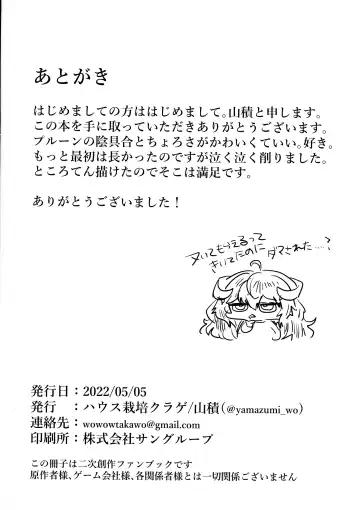 あとがき
はじめましての方ははじめまして。山積と申します。
この本を手に取っていただきありがとうございます。
プルーンの陰具合とちょろさがかわいくていい。好き。
もっと最初は長かったのですが泣く泣く削りました。
ところてん描けたのでそこは満足です。
ありがとうございました！
ヌいてもらえるって
きいてたのに
ダマされた…？
発行日：2022/05/05
発行　：ハウス栽培クラゲ/山積（@yamazumi_wo）
連絡先：wowowtakawo@gmail.com
印刷所：株式会社サングループ
この冊子は二次創作ファンブックです
原作者様、ゲーム会社様、各関係者様とは一切関係ございません